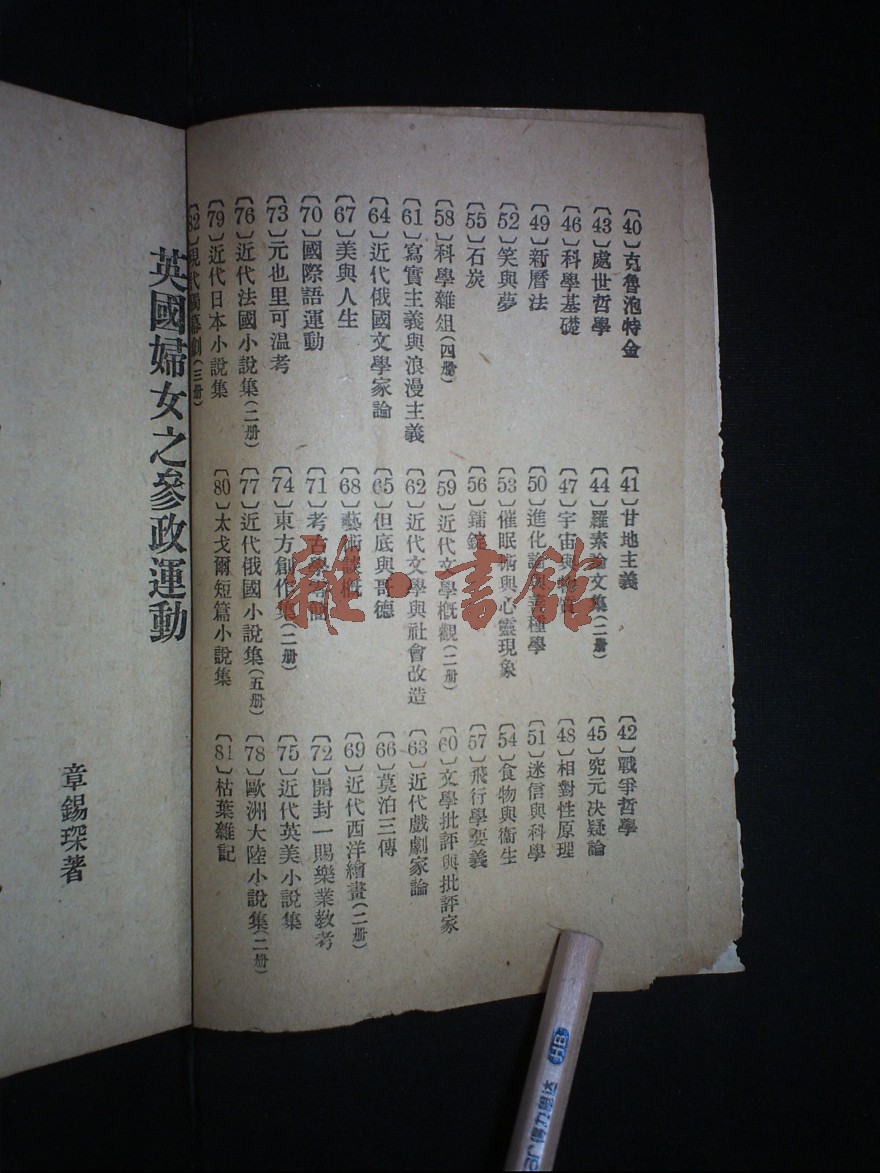 〔40〕克魯泡特金
〔41〕甘地主義
〔42〕戰爭哲學
〔43〕處世哲學
〔44〕羅素論文集(二册)
〔45〕究元决疑論
〔46〕科學基礎
〔47〕宇宙與物質
〔48〕相對性原理
〔49〕新曆法
〔50〕進化論與善種學
〔51〕迷信與科學
〔52〕笑與夢
〔53〕催眠術與心靈現象
〔54〕食物與衞生
〔55〕石炭
〔56〕鐳錠
〔57〕飛行學要義
〔58〕科學雜俎(四册)
〔59〕近代文學概觀(二册)
〔60〕文學批評與批評家
〔61〕寫實主義與浪漫主義
〔62〕近代文學與社會改造
〔63〕近代戲劇家論
〔64〕近代俄國文學家論
〔65〕但底與哥德
〔66〕莫泊三傳
〔67〕美與人生
〔68〕藝術談概
〔69〕近代西洋繪畫(二册)
〔70〕國際語運動
〔71〕考古學
〔72〕開封一賜樂業教考
〔73〕元也里可温考
〔74〕東方創作集(二册)
〔75〕近代英美小說集
〔76〕近代法國小說集(二册)
〔77〕近代俄國小說集(五册)
〔78〕歐洲大陸小說集(二册)
〔79〕近代日本小說集
〔80〕太戈爾短篇小說集
〔81〕枯葉雜記
〔82〕現代獨幕劇(三册)
英國婦女之參政運動
章錫琛著
雜·書館
HB
得力